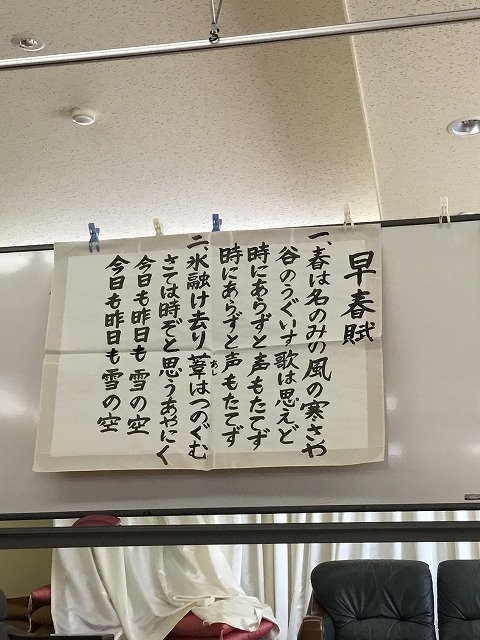 早春賦
一、春は名のみの風の寒さや
谷のうぐいす歌は思えど
時にあらずと声もたてず
時にあらずと声もたてず
二、氷融け去り葦はつのぐむ
あし
さては時ぞと思うあやにく
今日も昨日も雪の空
今日も昨日も雪の空